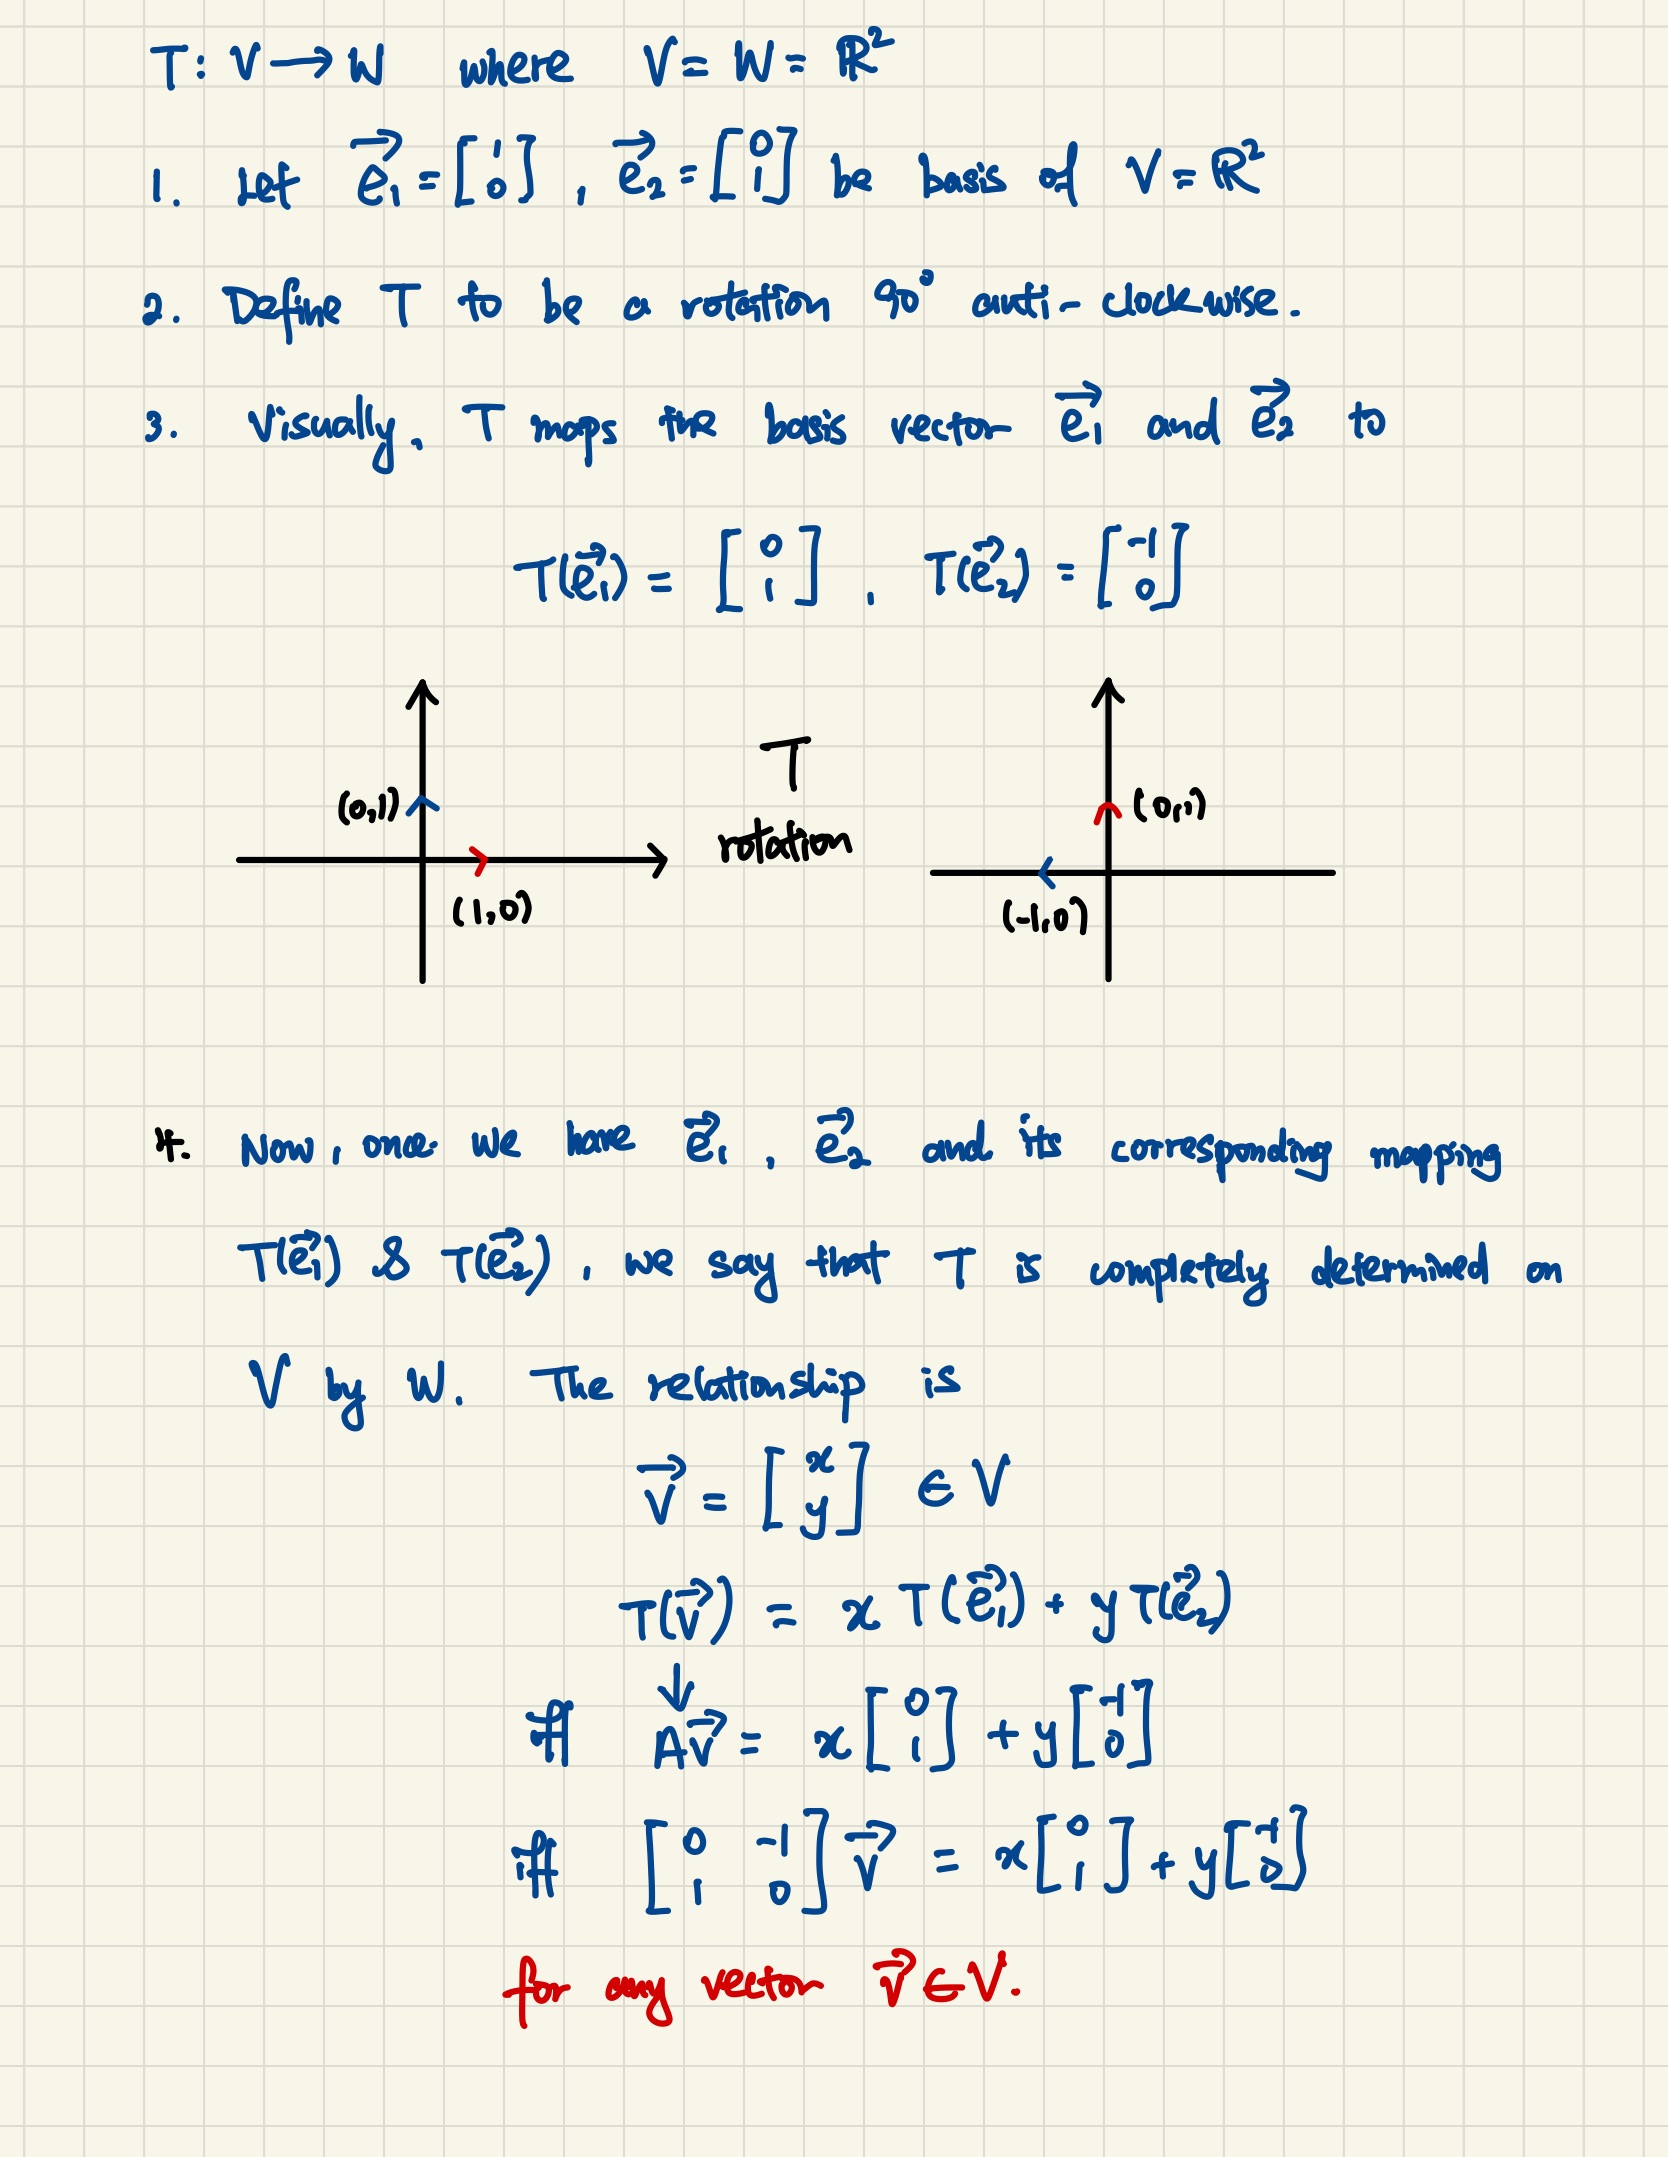 T: V → W where V = W = ℝ²
1. Let e⃗₁ = [1 0], e⃗₂ = [0 1] be basis of V = ℝ²
2. Define T to be a rotation 90° anti-clockwise.
3. Visually, T maps the basis vector e⃗₁ and e⃗₂ to
T(e⃗₁) = [0 1], T(e⃗₂) = [-1 0]
(0,1)
(1,0)
T
rotation
(0,1)
(-1,0)
4. Now, once we have e⃗₁, e⃗₂ and its corresponding mapping
T(e⃗₁) & T(e⃗₂), we say that T is completely determined on
V by W. The relationship is
v⃗ = [x y] ∈ V
T(v⃗) = x T(e⃗₁) + y T(e⃗₂)
↓
iff Av⃗ = x[0 1] + y[-1 0]
iff [0 -1 1 0] v⃗ = x[0 1] + y[-1 0]
for any vector v⃗ ∈ V.